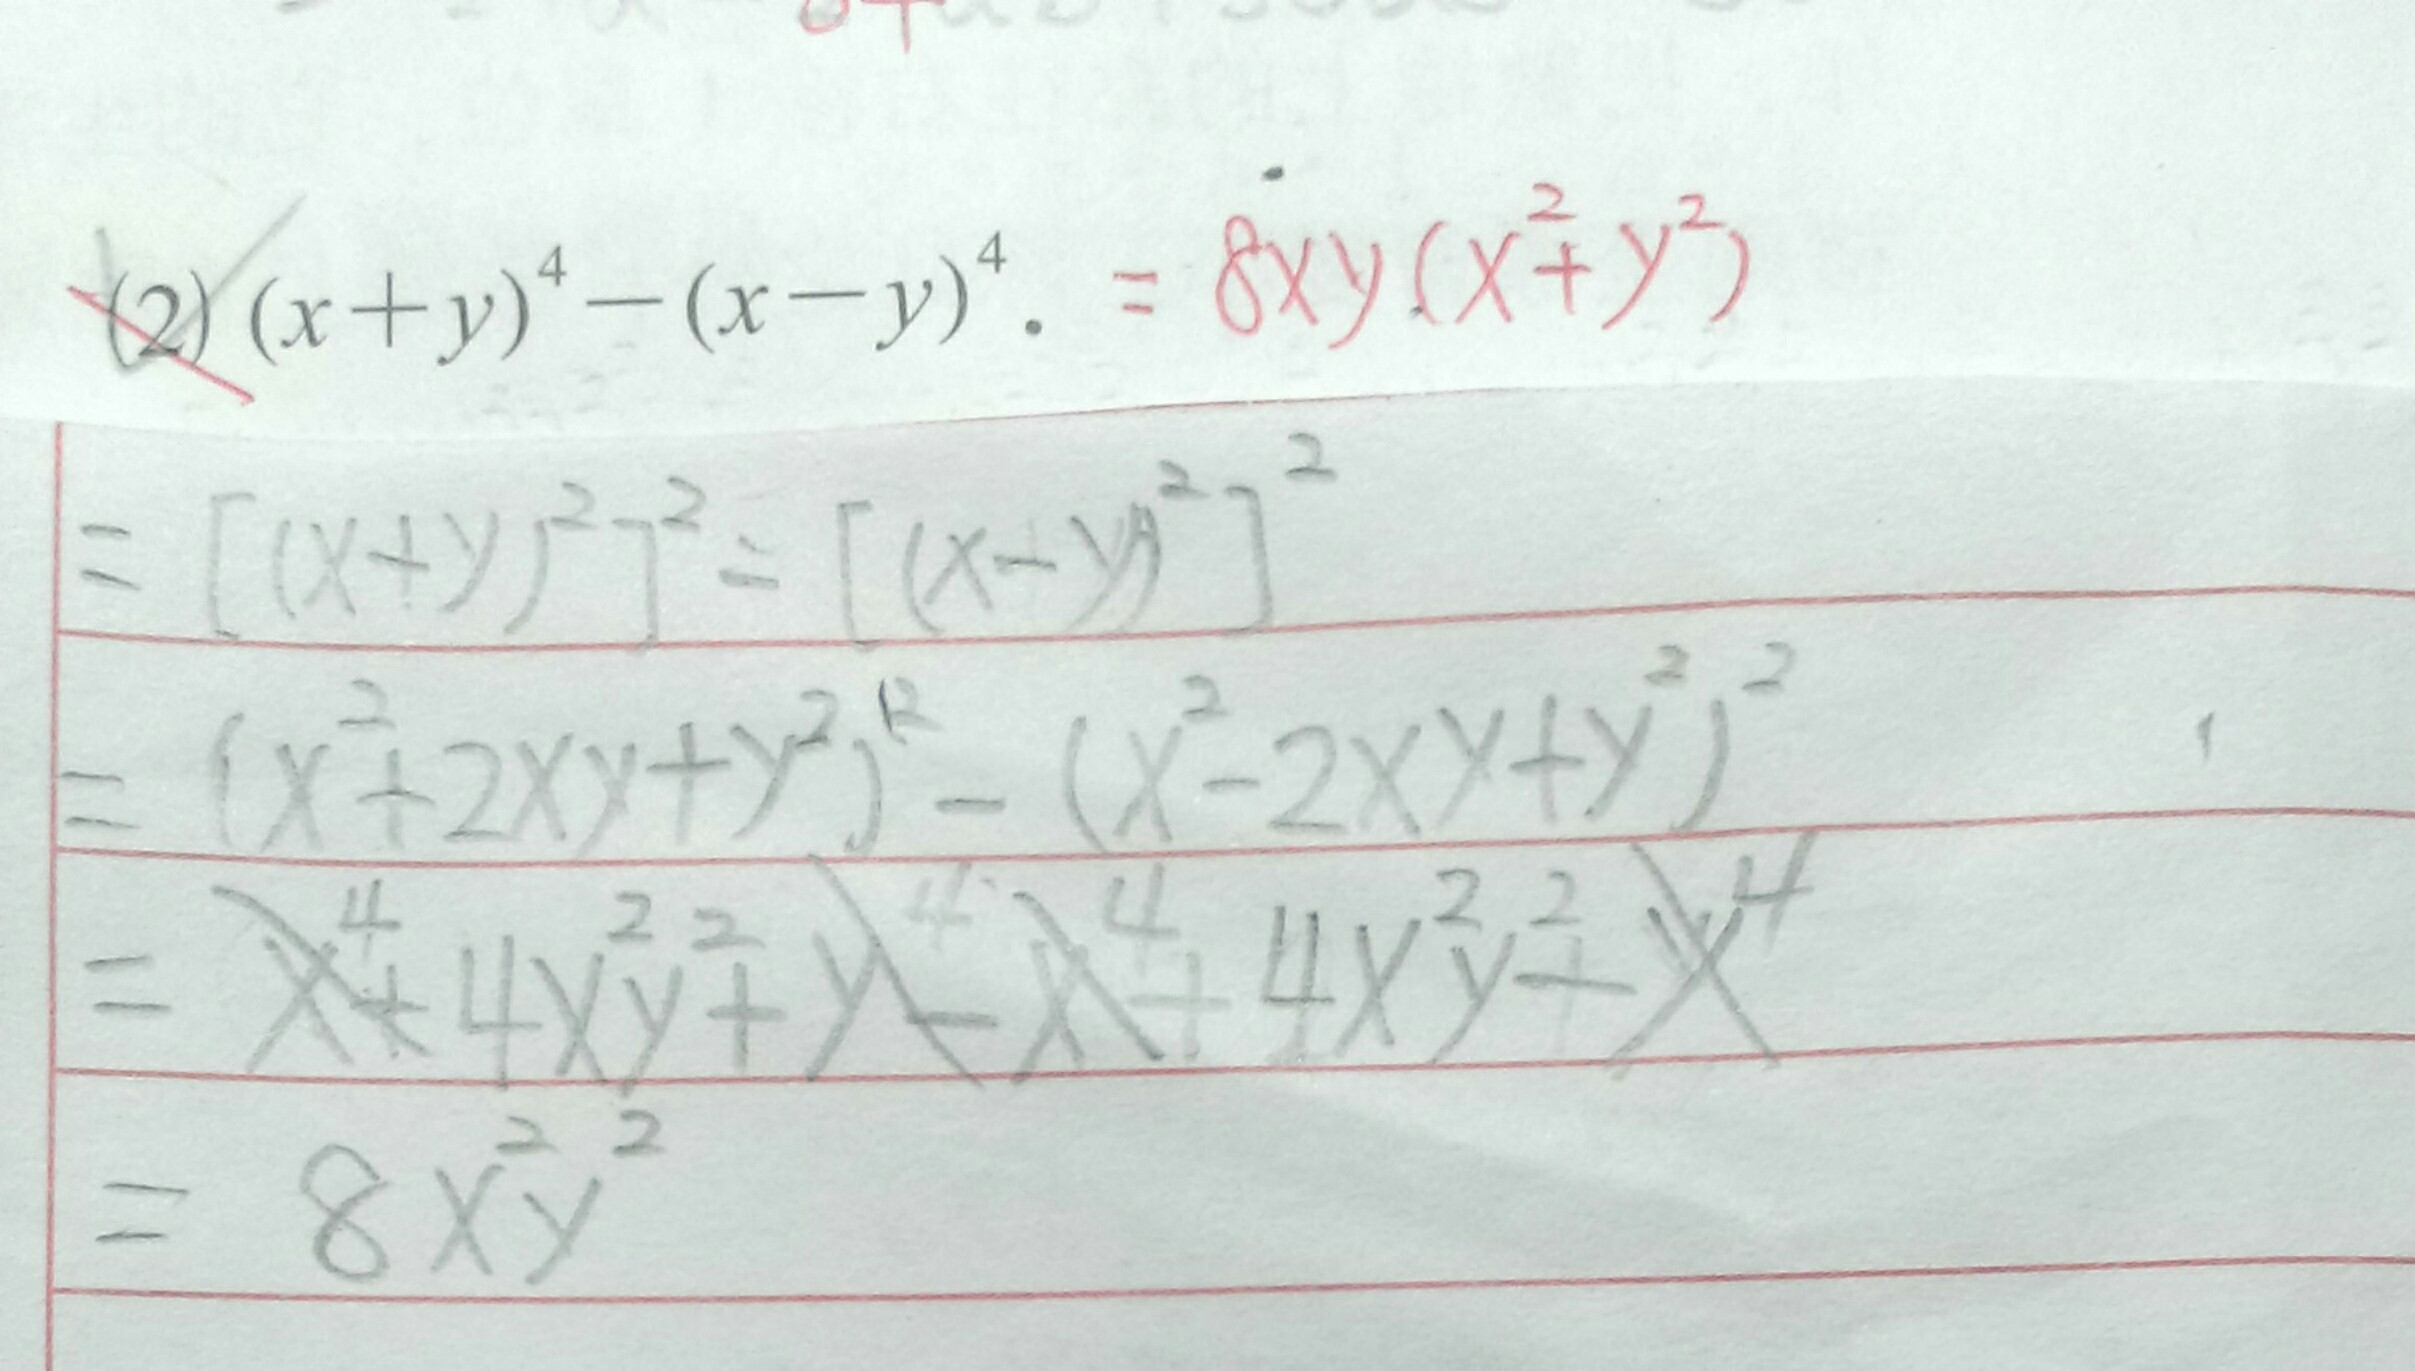 (2) (x+y)⁴−(x−y)⁴. = 8xy(x²+y²)
= [(x+y)²]² - [(x-y)²]²
= (x²+2xy+y²)² - (x²-2xy+y²)²
= x⁴+4x²y²+y⁴-x⁴+4x²y²-x⁴
= 8x²y²